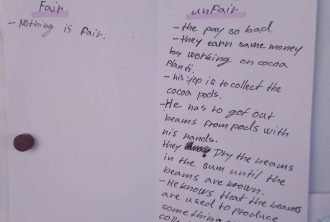 Fair
- Nothing is fair.
unFair
- the pay so bad.
- they earn same money
by working on cocoa
Planti.
- his jop is to collect the
cocoa pods.
- He has to got out
beams from pods with
his hands.
they Dry the beams
in the sum until the
beams are brown.
- He knows that the beams
are used to produce
something